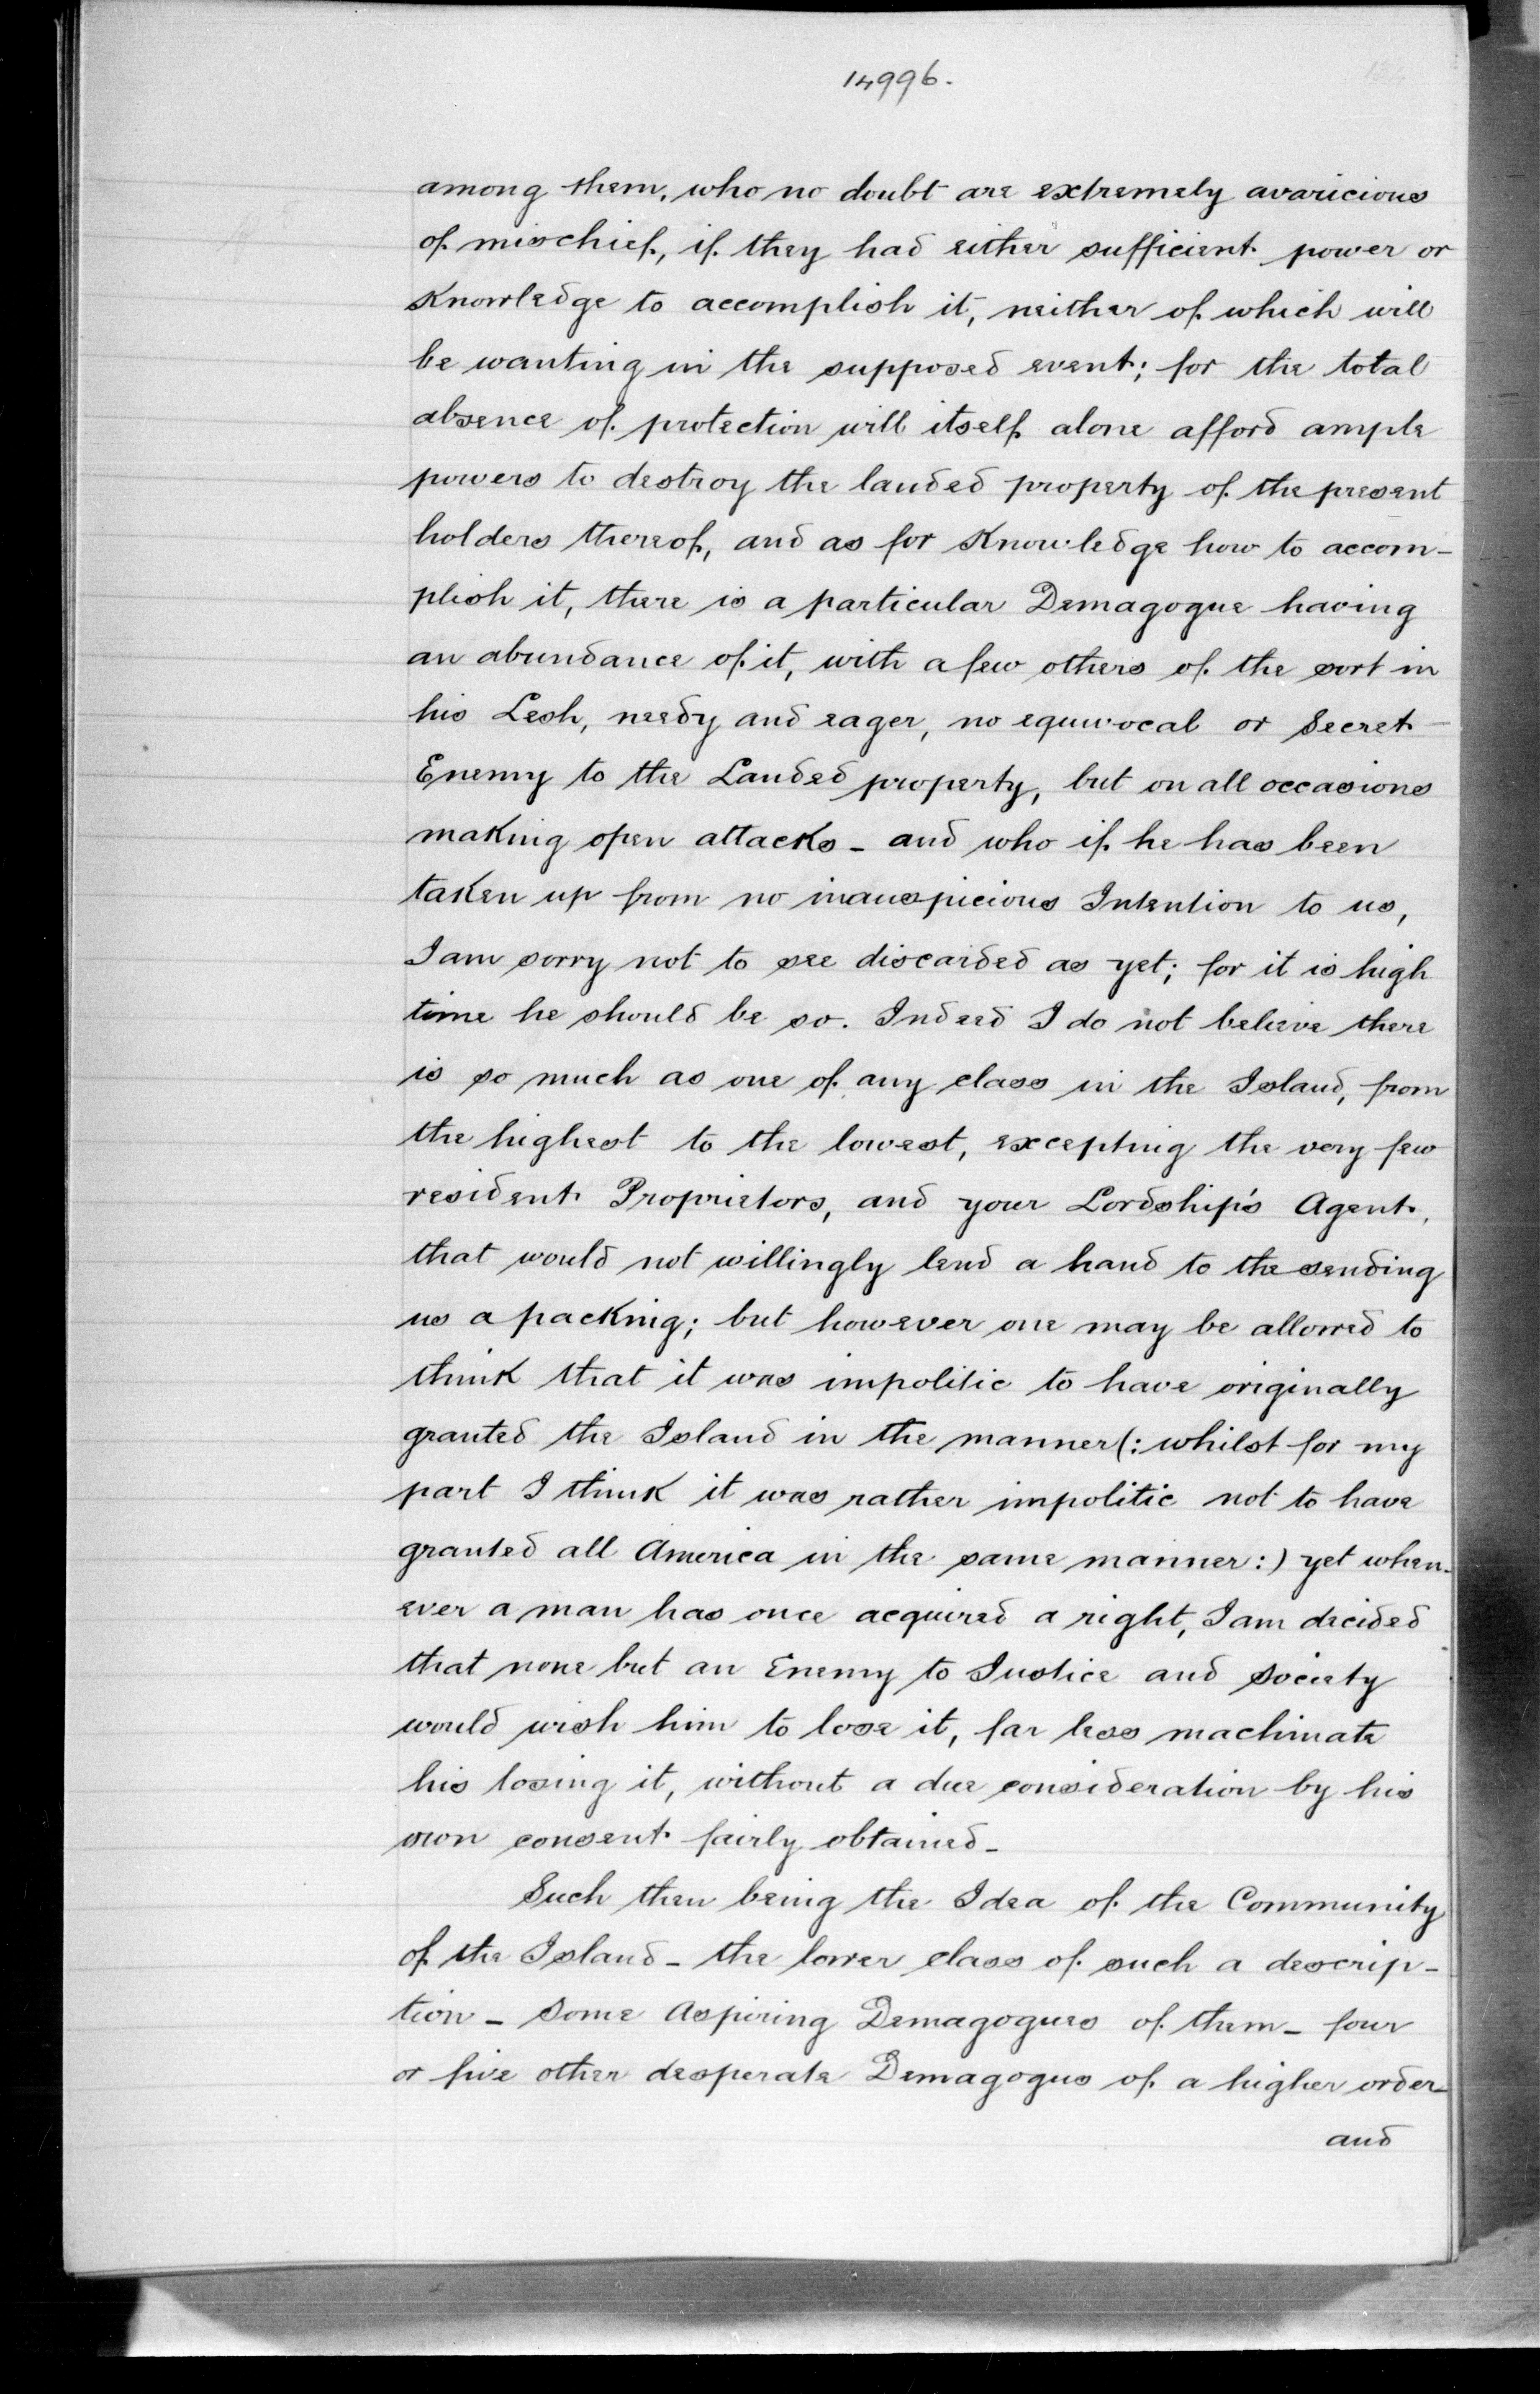 14996.
among them, who no doubt are extremely avaricious
of mischief, if they had either sufficient power or
Knowledge to accomplish it, neither of which will
be wanting in the supposed event; for the total
absence of protection will itself alone afford ample
powers to destroy the landed property of the present
holders thereof, and as for Knowledge how to accom-
plish it, there is a particular Demagogue having
an abundance of it, with a few others of the sort in
his Lesh, needy and eager, no equivocal or Secret
Enemy to the Landed property, but on all occasions
making open attacks - and who if he has been
taken up from no inauspicious Intention to us,
I am sorry not to see discarded as yet; for it is high
time he should be so. Indeed I do not believe there
is so much as one of any class in the Island, from
the highest to the lowest, excepting the very few
resident Proprietors, and your Lordship's Agent,
that would not willingly lend a hand to the sending
us a packing; but however one may be allowed to
think that it was impolitic to have originally
granted the Island in the manner (: whilst for my
part I think it was rather impolitic not to have
granted all America in the same manner :) yet when-
ever a man has once acquired a right, I am decided
that none but an Enemy to Justice and Society
would wish him to lose it, far less machinate
his losing it, without a due consideration by his
own consent fairly obtained -
Such then being the Idea of the Community
of the Island - the lower class of such a descrip-
tion - Some Aspiring Demagogues of them - four
or five other desperate Demagogus of a higher order -
and